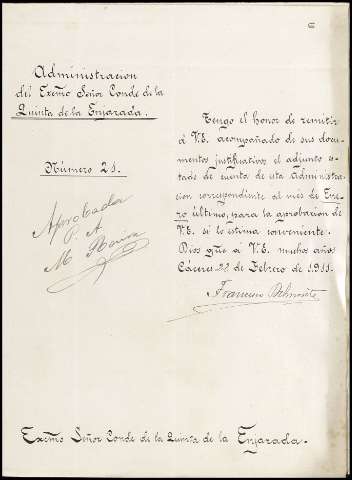 Administracion
del Exmo Señor Conde de la
Quinta de la Enjarada.
Número 21.
Aprobada
P. A.
M.
Tengo el honor de remitir
á V.E. acompañado de sus docu-
mentos justificativos el adjunto es-
tado de cuenta de esta Administra-
cion correspondiente al mes de Ene-
ro último, para la aprobacion de
V.E. si lo estima conveniente.
Dios gue á V.E. muchos años
Cáceres 28 de Febrero de 1911.
Francisco
Exmo Señor Conde de la Quinta de la Enjarada.